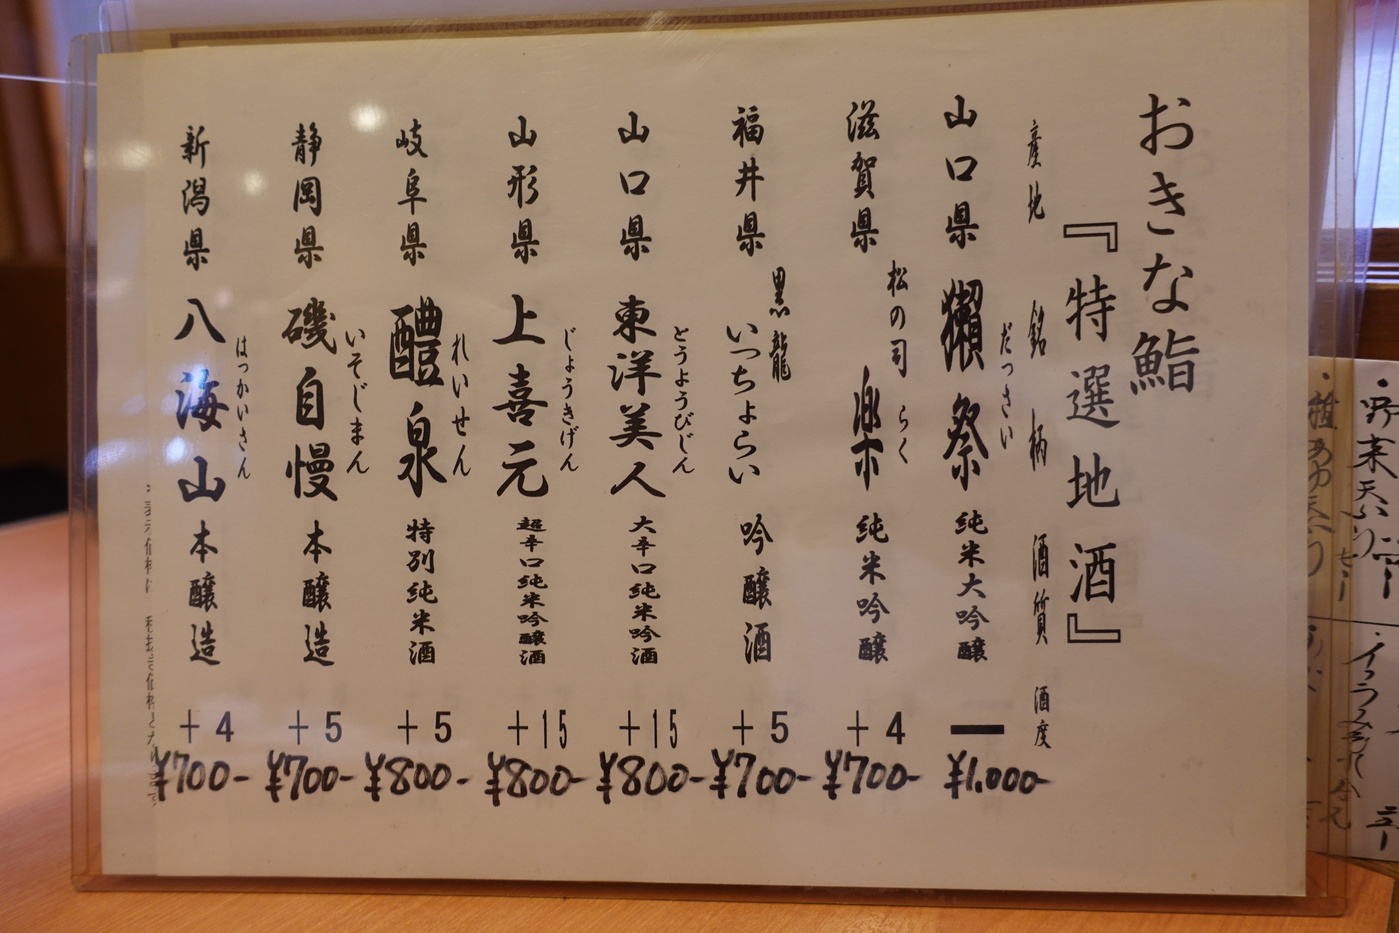 おきな鮨
『特選地酒』
産地 銘柄 酒質 酒度
山口県 獺祭 だっさい 純米大吟醸 ー ¥1.000-
滋賀県 松の司 楽 らく 純米吟醸 +4 ¥700-
福井県 黒龍 いっちょらい 吟醸酒 +5 ¥700-
山口県 東洋美人 とうようびじん 大辛口純米吟醸酒 +15 ¥800-
山形県 上喜元 じょうきげん 超辛口純米吟醸酒 +15 ¥800-
岐阜県 醴泉 れいせん 特別純米酒 +5 ¥800-
静岡県 磯自慢 いそじまん 本醸造 +5 ¥700-
新潟県 八海山 はっかいさん 本醸造 +4 ¥700-